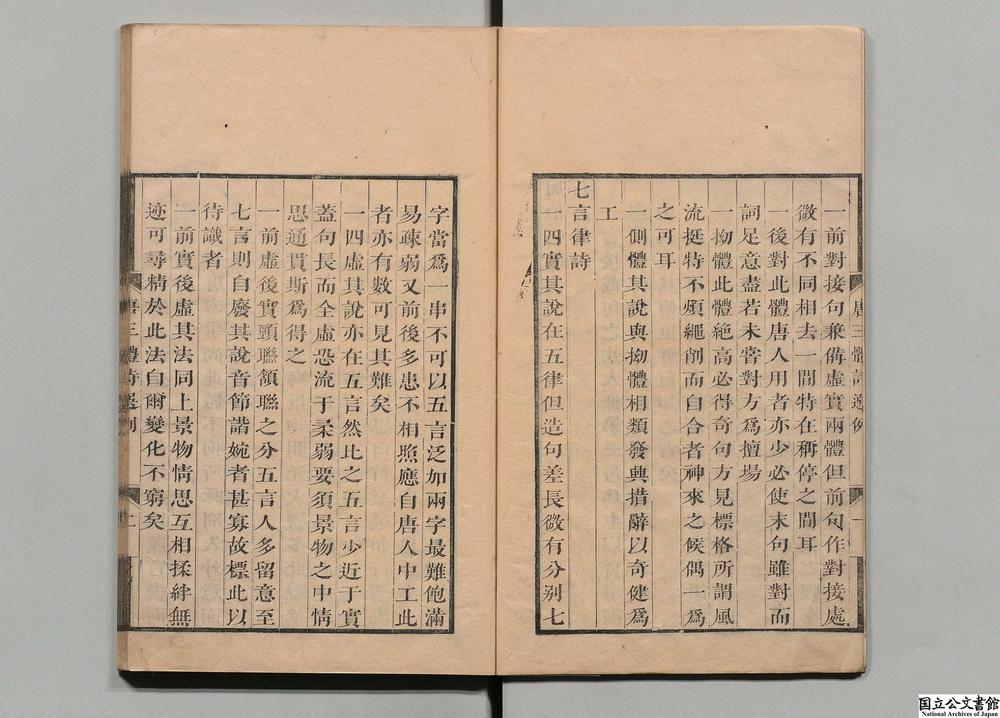 一前對接句兼備虛實兩體但前句作對接處
微有不同相去一間特在稱停之間耳
一後對此體唐人用者亦少必使末句雖對而
詞足意盡若未甞對方爲擅塲
一拗體此體絶高必得奇句方見標格所謂風
流挺特不煩繩削而自合者神來之候偶一爲
之可耳
一側體其說與拗體相類發興措辭以奇健爲
工
七言律詩
一四實其說在五律但造句差長微有分别七
字當爲一串不可以五言泛加兩字最難飽滿
易疎弱又前後多患不相照應自唐人中工此
者亦有數可見其難矣
一四虛其說亦在五言然比之五言少近于實
蓋句長而全虛恐流于柔弱要須景物之中情
思通貫斯爲得之
一前虛後實頸聮頷聮之分五言人多留意至
七言則自廢其說音節諧婉者甚寡故標此以
待識者
一前實後虛其法同上景物情思互相揉絆無
迹可尋精於此法自爾變化不窮矣
唐三體詩選例
唐三體詩選例
国立公文書館
National Archives of Japan